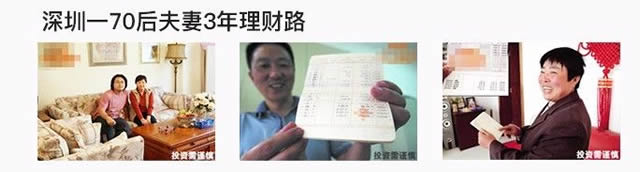 深圳一70后夫妻3年理财路
投资需谨慎
投资需谨慎
投资需谨慎